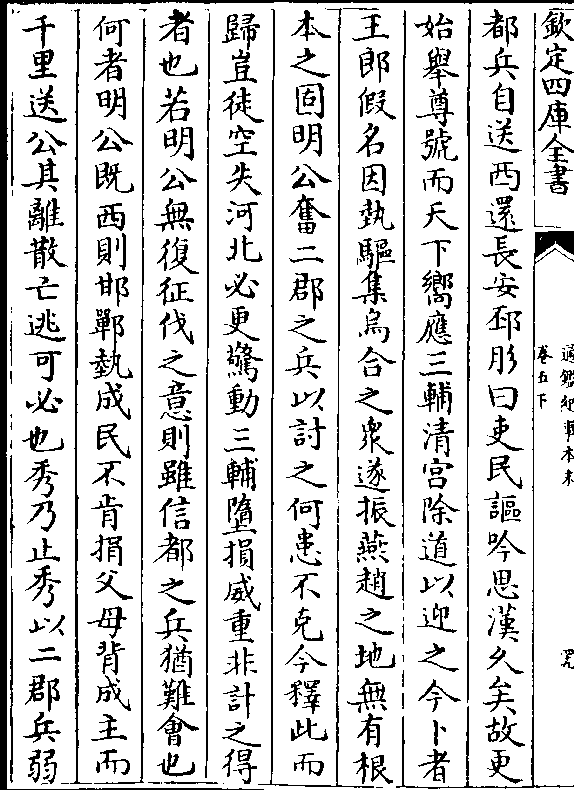 欽定四庫全書
通鑑紀事本末
卷五下
都兵自送西還長安邳肜曰吏民謳吟思漢久矣故更
始舉尊號而天下嚮應三輔清宮除道以迎之今卜者
王郎假名因埶驅集烏合之衆遂振燕趙之地無有根
本之固明公奮二郡之兵以討之何患不克今釋此而
歸豈徒空失河北必更驚動三輔墮損威重非計之得
者也若明公無復征伐之意則雖信都之兵猶難會也
何者明公既西則邯鄲埶成民不肯捐父母背成主而
千里送公其離散亡逃可必也秀乃止秀以二郡兵弱